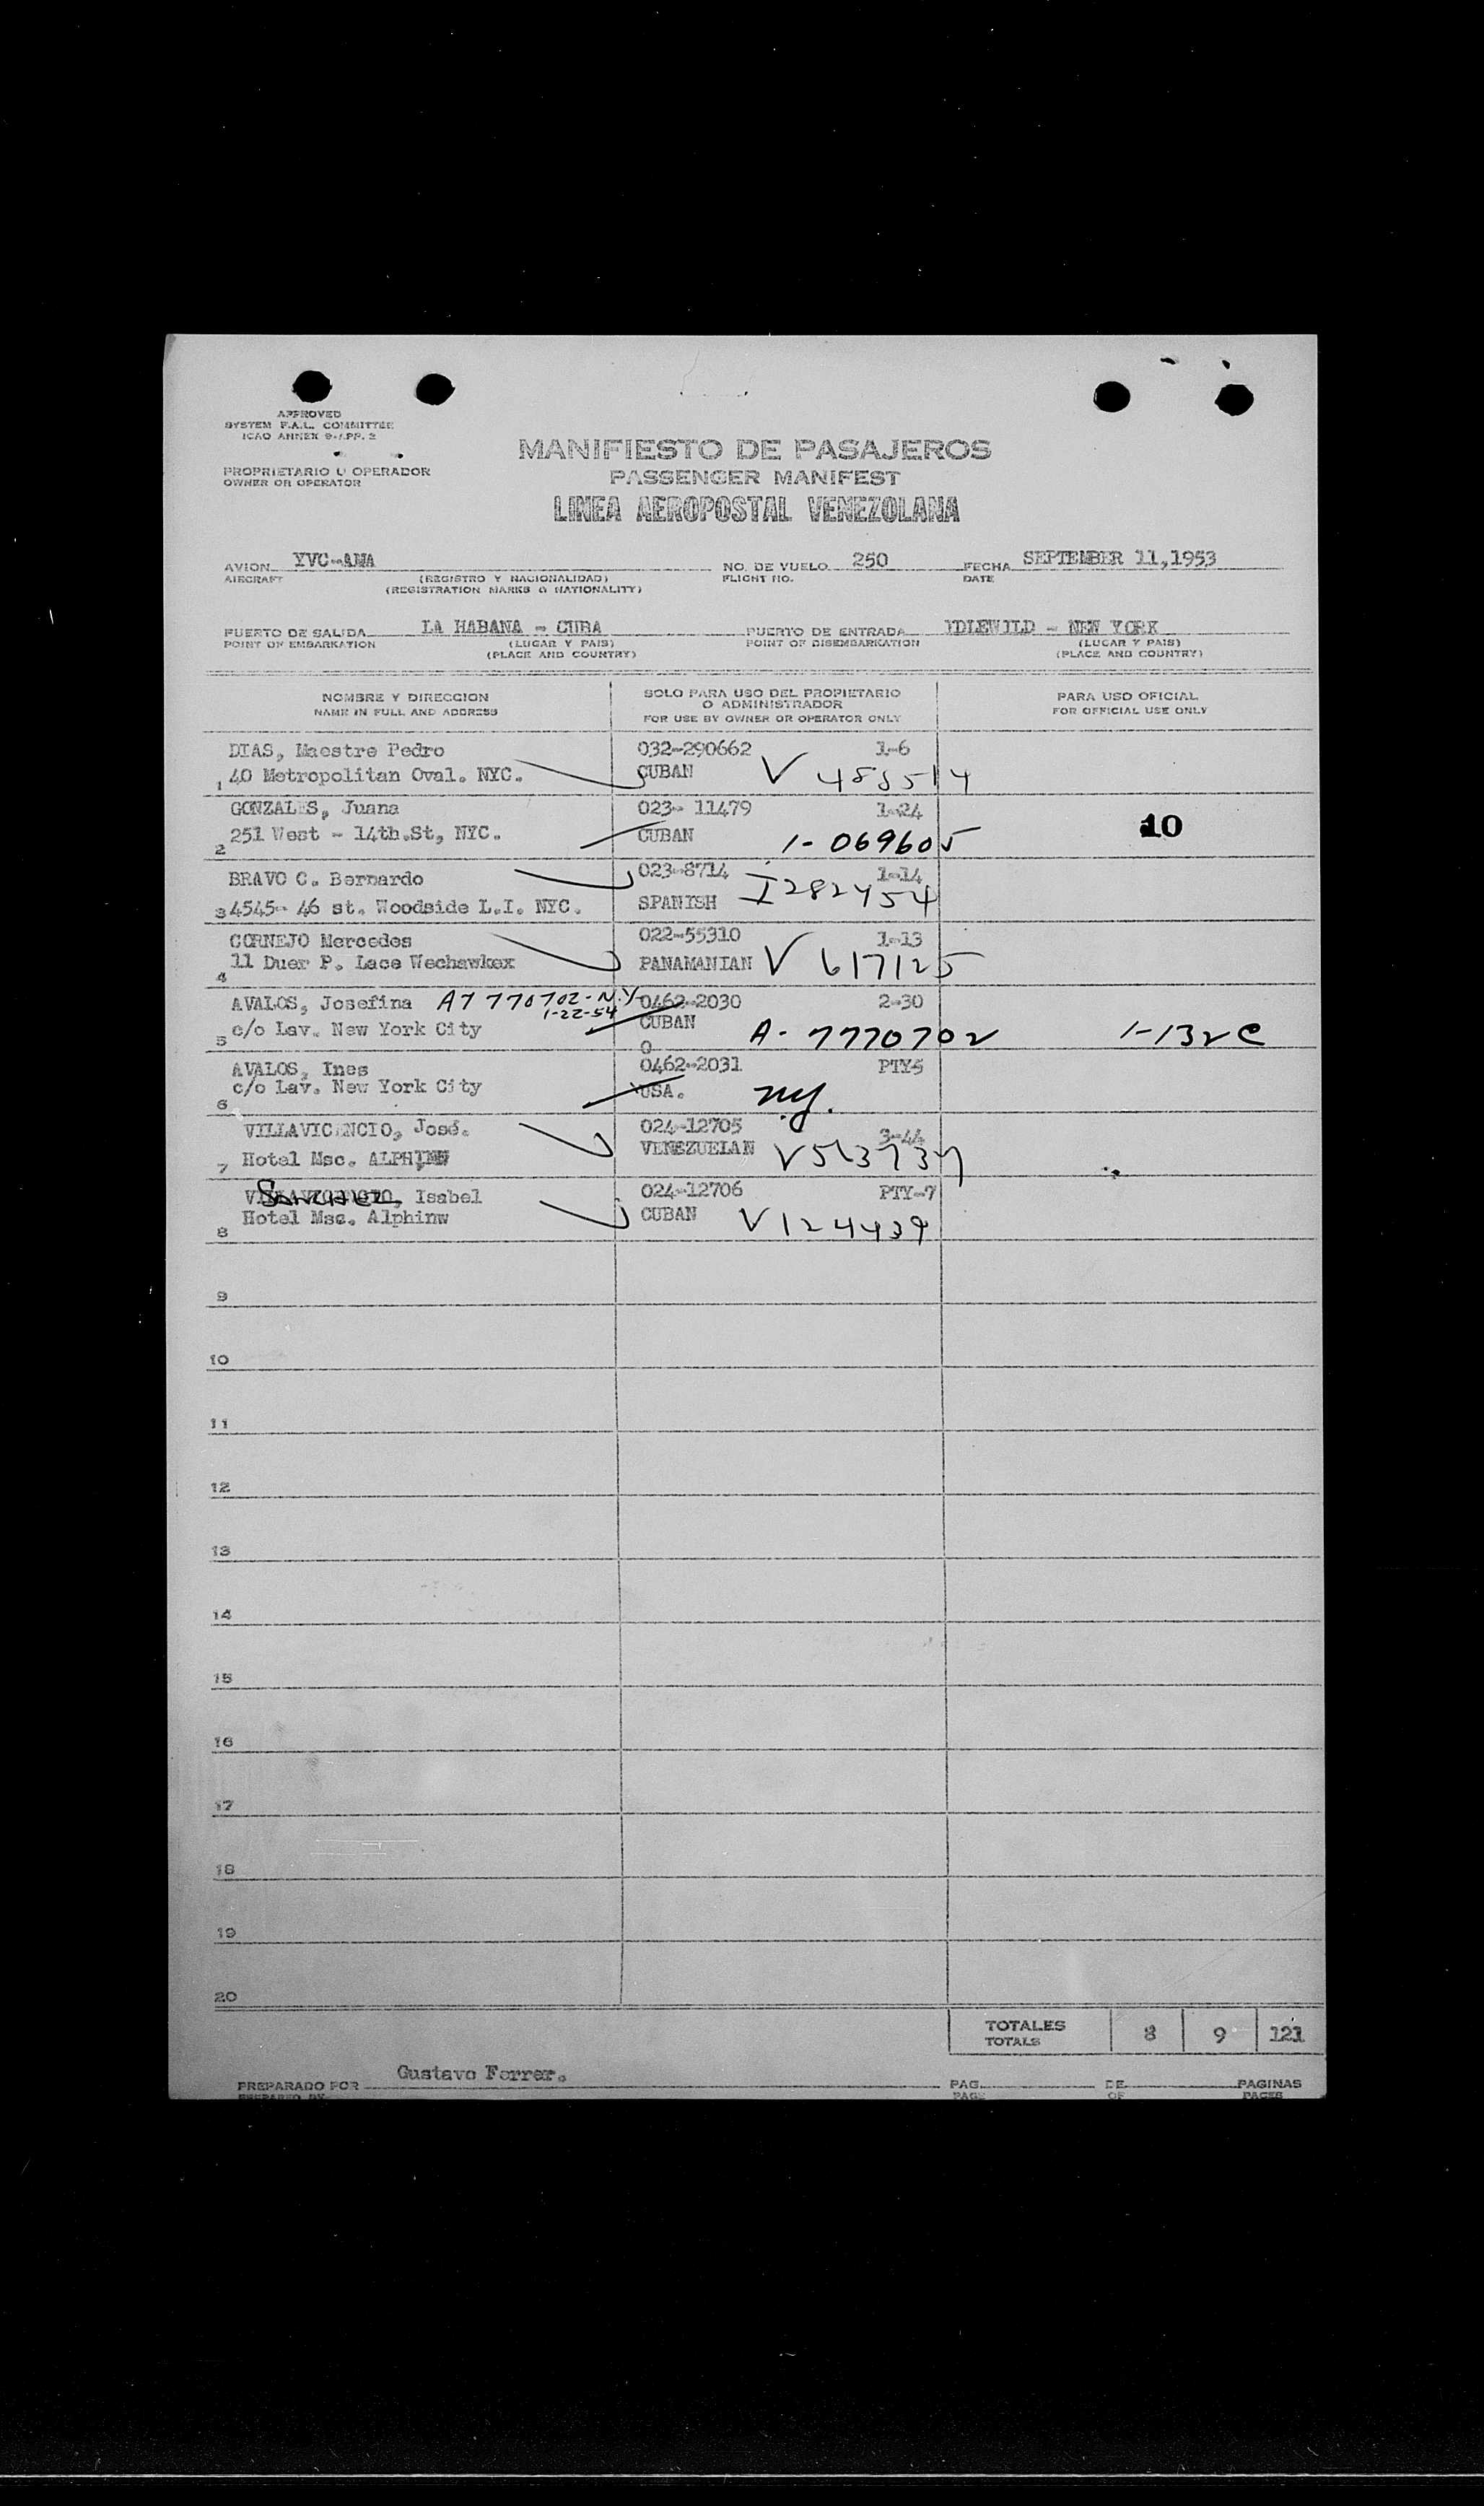 APPROVED
SYSTEM F.A.L. COMMITTEE
ICAO ANNEX 9-APP. 2
PROPRIETARIO U OPERADOR
OWNER OR OPERATOR
MANIFIESTO DE PASAJEROS
PASSENGER MANIFEST
LINEA AEROPOSTAL VENEZOLANA
AVION YVC-AMA NO. DE VUELO 250 FECHA SEPTEMBER 11,1953
AIRCRAFT (REGISTRO Y NACIONALIDAD) FLIGHT NO. DATE
(REGISTRATION MARKS & NATIONALITY)
PUERTO DE SALIDA LA HABANA - CUBA PUERTO DE ENTRADA IDLEWILD - NEW YORK
POINT OF EMBARKATION (LUGAR Y PAIS) POINT OF DISEMBARKATION (LUGAR Y PAIS)
(PLACE AND COUNTRY) (PLACE AND COUNTRY)
NOMBRE Y DIRECCION SOLO PARA USO DEL PROPIETARIO PARA USO OFICIAL
NAME IN FULL AND ADDRESS O ADMINISTRADOR FOR OFFICIAL USE ONLY
FOR USE BY OWNER OR OPERATOR ONLY
DIAS, Maestre Pedro 032-290662 1-6
1 40 Metropolitan Oval. NYC. CUBAN V 488514
GONZALES, Juana 023- 11479 1-24
2 251 West - 14th.St, NYC. CUBAN 1-069605 10
BRAVO C. Bernardo 023-8714 1-14
3 4545- 46 st. Woodside L.I. NYC. SPANISH I282454
CORNEJO Mercedes 022-55310 1-13
4 11 Duer P. Lace Wechawkex PANAMANIAN V 617125
AVALOS, Josefina A7 770702-N.Y. 0462-2030 2-30
1-22-54
5 c/o Lav. New York City CUBAN A-7770702 1-132c
0
AVALOS, Ines 0462-2031 PTY5
6 c/o Lav. New York City USA. ny.
VILLAVICENCIO, José. 024-12705 3-44
7 Hotel Msc. ALPHINW VENEZUELAN V513737
VILLAVICENCIO, Isabel 024-12706 PTY-7
8 Hotel Msc. Alphinw CUBAN V124439
9
10
11
12
13
14
15
16
17
18
19
20
TOTALES 8 9 121
TOTALS
PREPARADO POR Gustavo Ferrer. PAG. DE PAGINAS
PREPARED BY PAGE OF PAGES